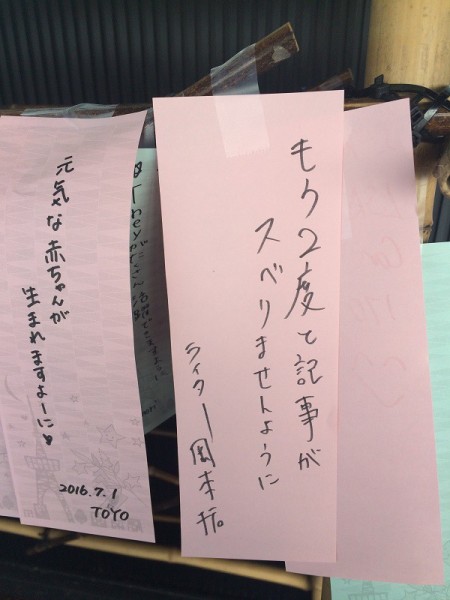 もう2度と記事が
スベリませんように
ライター岡本拓
元気な赤ちゃんが
生まれますよーに♥
2016.7.1
TOYO